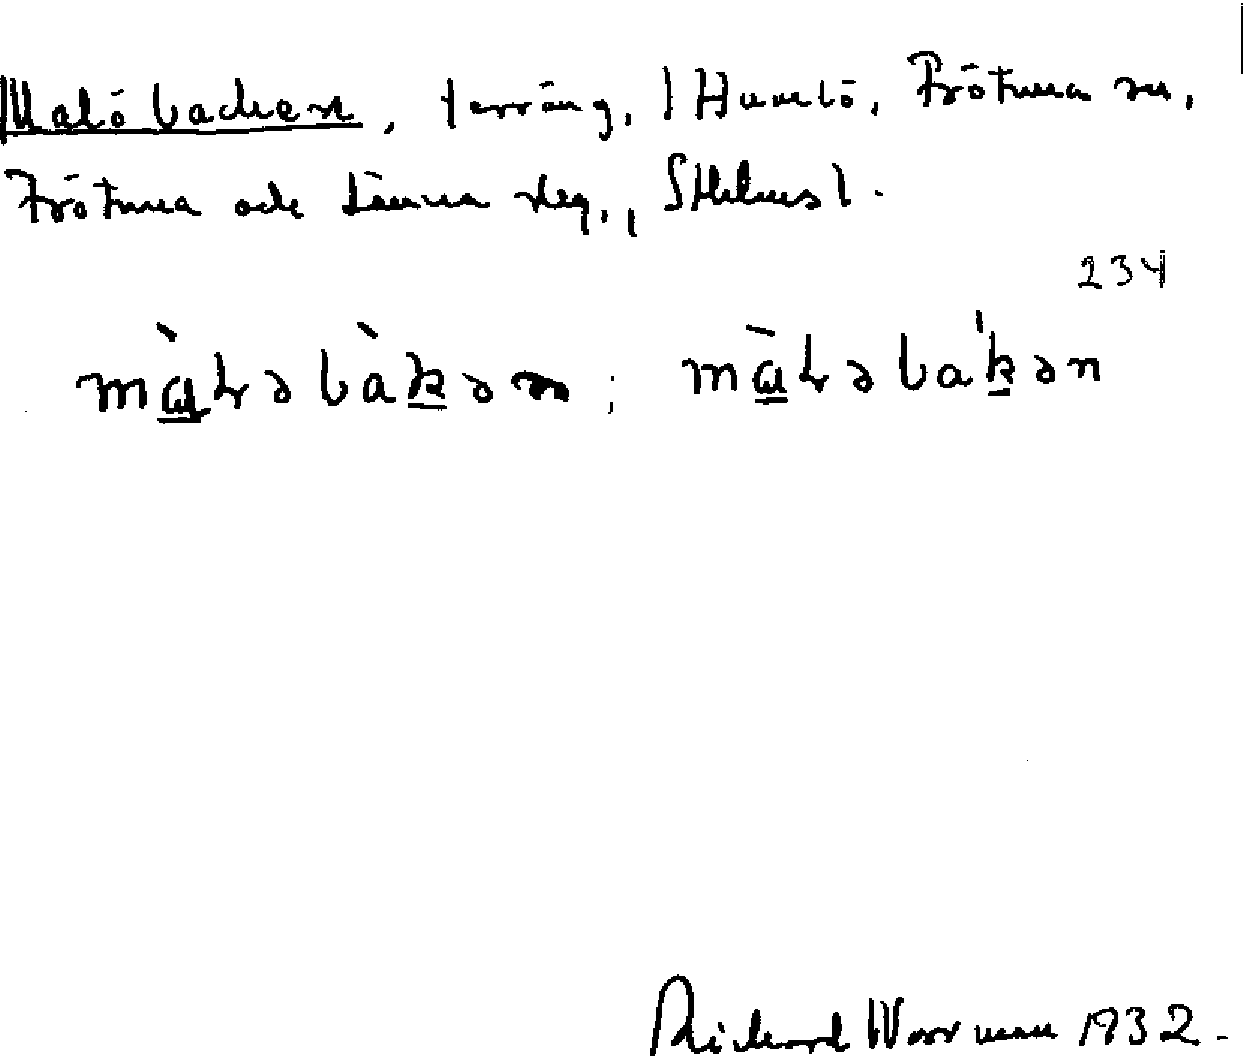 Malöbacken, terräng, 1 Humlö, Frötuna sn,
Frötuna och Länna skg., Sthlms l.
234
màⱡəbàkən; māⱡəbákən
Richard Norrman 1932.